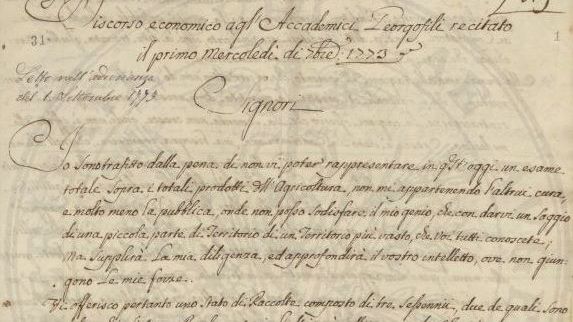 Discorso economico agl' Accademici Georgofili recitato
31
1
il primo Mercoledì di 7bre. 1773
Letto nell' adunanza
del 1. Settembre 1773
Signori
Io sono trafitto dalla pena di non vi poter rappresentare in quest' oggi un esame
totale sopra i totali prodotti dell' Agricoltura, non mi appartenendo l'altrui cura,
e molto meno la pubblica, onde non posso sodisfare il mio genio, che con darvi un saggio
di una piccola parte di Territorio di un Territorio più vasto, che voi tutti conoscete;
Ma supplirà la mia diligenza, ed approfondirà il vostro intelletto, ove non giun-
gono le mie forze.
Vi offerisco pertanto uno stato di Raccolte composto di tre sessennii, due de quali sono